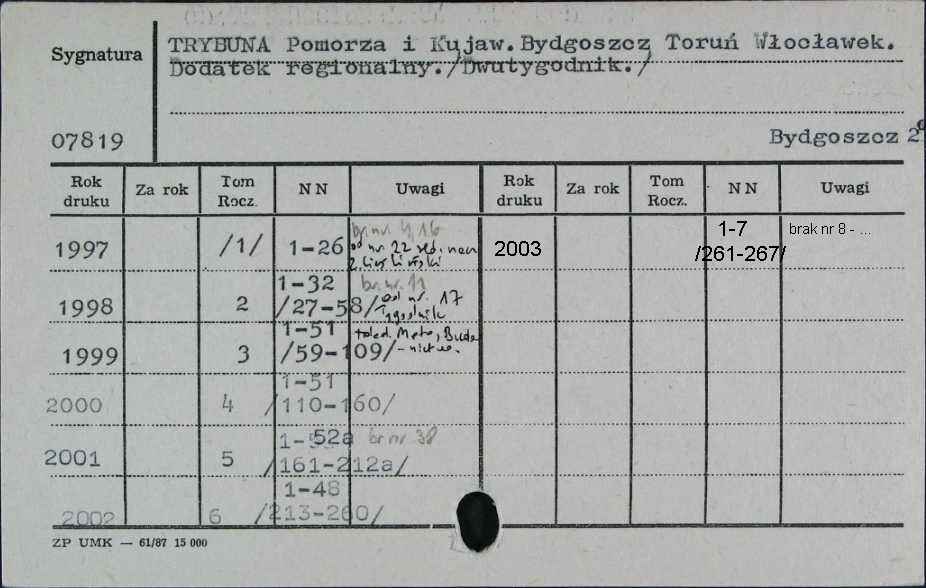 Sygnatura
TRYBUNA Pomorza i Kujaw.Bydgoszcz Toruń Włocławek.
Dodatek regionalny./Dwutygodnik./
07819
Bydgoszcz 2°
Rok druku Za rok Tom Rocz. N N Uwagi Rok druku Za rok Tom Rocz. N N Uwagi
1997 /1/ 1-26 br. nr. 4, 16
od nr. 22 red. nacz.
2003 1-7 /261-267/ brak nr 8 - ...
1998 2 1-32 /27-58/ br. nr. 11
od nr. 17
Tygodnik
1999 3 1-51 /59-109/
2000 4 1-51 /110-160/
2001 5 1-52a /161-212a/ br nr 38
2002 6 1-48 /213-260/
ZP UMK — 61/87 15 000